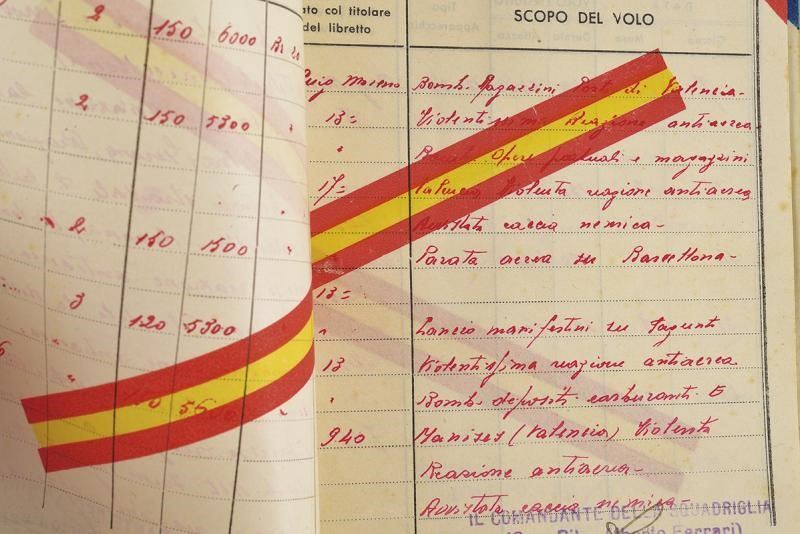 2 150 6000
2 150 5300
2 150 1500
3 120 5300
ato col titolare
del libretto
Apparecchio
SCOPO DEL VOLO
Bomb. Magazzini Port. di Valencia-
13= Violentissima Reazione antiaerea
Opere portuali e magazzini
17= Valencia Violenta reazione antiaerea
Avvistata caccia nemica-
Parata aerea su Barcellona-
13=
Lancio manifestini su Sagunti
13 Violentissima reazione antiaerea
Bomb. depositi carburanti E
940 Manises (Valencia) Violenta
Reazione antiaerea-
Avvistata caccia nemica-
IL COMANDANTE DELLA SQUADRIGLIA
Ferrari)